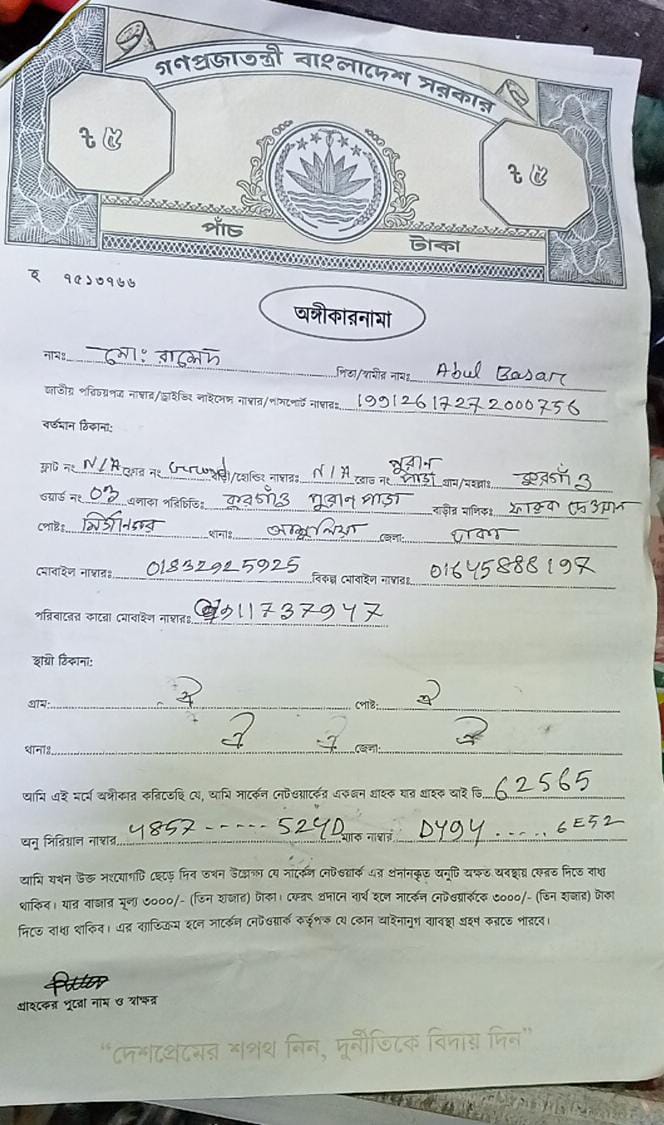 গণপ্রজাতন্ত্রী বাংলাদেশ সরকার
৳ ৫ ৳ ৫
পাঁচ টাকা
হ ৭৫১৩৭৬৬
অঙ্গীকারনামা
নামঃ মো: রাসেদ পিতা/স্বামীর নামঃ Abul Basar
জাতীয় পরিচয়পত্র নাম্বার/ড্রাইভিং লাইসেন্স নাম্বার/পাসপোর্ট নাম্বারঃ 19912617272000756
বর্তমান ঠিকানা:
ফ্ল্যাট নং N/A ফ্লোর নং Ground বাড়ী/হোল্ডিং নাম্বারঃ N/A রোড নং পুরান পাড়া গ্রাম/মহল্লাঃ কুরগাঁও
ওয়ার্ড নং 03 এলাকা পরিচিতিঃ কুরগাঁও পুরান পাড়া বাড়ীর মালিকঃ ফারুক দেওয়ান
পোষ্টঃ মির্জানগর থানাঃ আশুলিয়া জেলা: ঢাকা
মোবাইল নাম্বারঃ 01832925925 বিকল্প মোবাইল নাম্বারঃ 01645888197
পরিবারের কারো মোবাইল নাম্বারঃ 911737947
স্থায়ী ঠিকানা:
গ্রাম: ঐ পোষ্ট: ঐ
থানাঃ ঐ জেলা: ঐ
আমি এই মর্মে অঙ্গীকার করিতেছি যে, আমি সার্কেল নেটওয়ার্কের একজন গ্রাহক যার গ্রাহক আই ডি 62565
অনু সিরিয়াল নাম্বার 4857 ------ 524D ম্যাক নাম্বার D494 ..... 6E52
আমি যখন উক্ত সংযোগটি ছেড়ে দিব তখন উল্লেক্ষ্য যে সার্কেল নেটওয়ার্ক এর প্রদানকৃত অনুটি অক্ষত অবস্থায় ফেরত দিতে বাধ্য
থাকিব। যার বাজার মূল্য ৩০০০/- (তিন হাজার) টাকা। ফেরৎ প্রদানে ব্যর্থ হলে সার্কেল নেটওয়ার্ককে ৩০০০/- (তিন হাজার) টাকা
দিতে বাধ্য থাকিব। এর ব্যতিক্রম হলে সার্কেল নেটওয়ার্ক কর্তৃপক্ষ যে কোন আইনানুগ ব্যবস্থা গ্রহণ করতে পারবে।
গ্রাহকের পুরো নাম ও স্বাক্ষর
“দেশপ্রেমের শপথ নিন, দুর্নীতিকে বিদায় দিন”